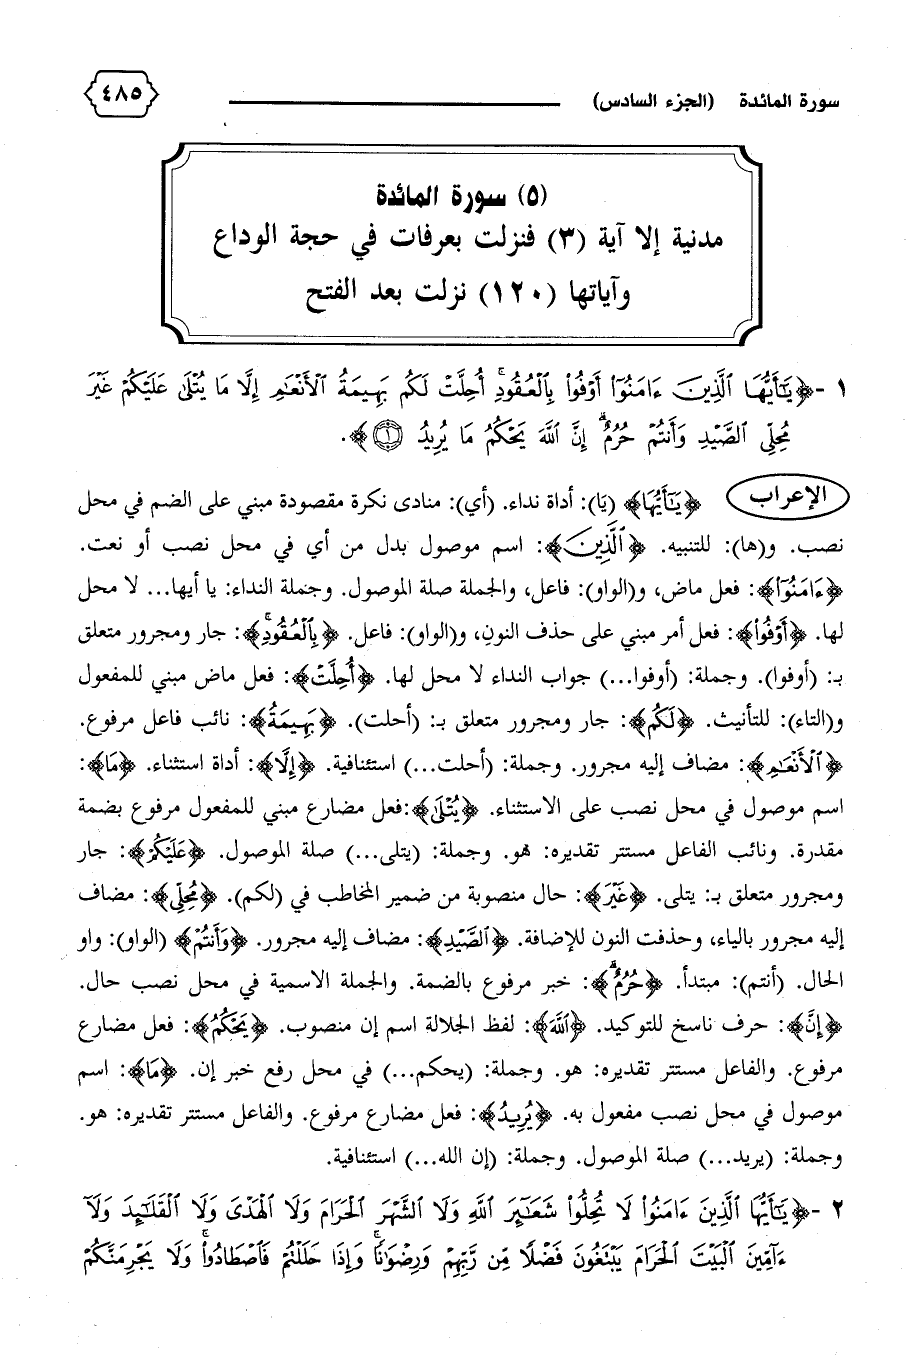 سورة المائدة (الجزء السادس) ٤٨٥
(٥) سورة المائدة
مدنية إلا آية (٣) فنزلت بعرفات في حجة الوداع
وآياتها (١٢٠) نزلت بعد الفتح
١ -﴿يَٰٓأَيُّهَا ٱلَّذِينَ ءَامَنُوٓا۟ أَوْفُوا۟ بِٱلْعُقُودِ ۚ أُحِلَّتْ لَكُم بَهِيمَةُ ٱلْأَنْعَٰمِ إِلَّا مَا يُتْلَىٰ عَلَيْكُمْ غَيْرَ
مُحِلِّى ٱلصَّيْدِ وَأَنتُمْ حُرُمٌ ۗ إِنَّ ٱللَّهَ يَحْكُمُ مَا يُرِيدُ ١﴾.
الإعراب ﴿يَٰٓأَيُّهَا﴾ (يَا): أداة نداء. (أي): منادى نكرة مقصودة مبني على الضم في محل
نصب. و(ها): للتنبيه. ﴿ٱلَّذِينَ﴾: اسم موصول بدل من أي في محل نصب أو نعت.
﴿ءَامَنُوٓا۟﴾: فعل ماض، و(الواو): فاعل، والجملة صلة الموصول. وجملة النداء: يا أيها... لا محل
لها. ﴿أَوْفُوا۟﴾: فعل أمر مبني على حذف النون، و(الواو): فاعل. ﴿بِٱلْعُقُودِ ۚ﴾: جار ومجرور متعلق
بـ: (أوفوا). وجملة: (أوفوا...) جواب النداء لا محل لها. ﴿أُحِلَّتْ﴾: فعل ماض مبني للمفعول
و(التاء): للتأنيث. ﴿لَكُم﴾: جار ومجرور متعلق بـ: (أحلت). ﴿بَهِيمَةُ﴾: نائب فاعل مرفوع.
﴿ٱلْأَنْعَٰمِ﴾: مضاف إليه مجرور. وجملة: (أحلت...) استئنافية. ﴿إِلَّا﴾: أداة استثناء. ﴿مَا﴾:
اسم موصول في محل نصب على الاستثناء. ﴿يُتْلَىٰ﴾:فعل مضارع مبني للمفعول مرفوع بضمة
مقدرة. ونائب الفاعل مستتر تقديره: هو. وجملة: (يتلى...) صلة الموصول. ﴿عَلَيْكُمْ﴾: جار
ومجرور متعلق بـ: يتلى. ﴿غَيْرَ﴾: حال منصوبة من ضمير المخاطب في (لكم). ﴿مُحِلِّى﴾: مضاف
إليه مجرور بالياء، وحذفت النون للإضافة. ﴿ٱلصَّيْدِ﴾: مضاف إليه مجرور. ﴿وَأَنتُمْ﴾ (الواو): واو
الحال. (أنتم): مبتدأ. ﴿حُرُمٌ ۗ﴾: خبر مرفوع بالضمة. والجملة الاسمية في محل نصب حال.
﴿إِنَّ﴾: حرف ناسخ للتوكيد. ﴿ٱللَّهَ﴾: لفظ الجلالة اسم إن منصوب. ﴿يَحْكُمُ﴾: فعل مضارع
مرفوع. والفاعل مستتر تقديره: هو. وجملة: (يحكم...) في محل رفع خبر إن. ﴿مَا﴾: اسم
موصول في محل نصب مفعول به. ﴿يُرِيدُ﴾: فعل مضارع مرفوع. والفاعل مستتر تقديره: هو.
وجملة: (يريد...) صلة الموصول. وجملة: (إن الله...) استئنافية.
٢ -﴿يَٰٓأَيُّهَا ٱلَّذِينَ ءَامَنُوا۟ لَا تُحِلُّوا۟ شَعَٰٓئِرَ ٱللَّهِ وَلَا ٱلشَّهْرَ ٱلْحَرَامَ وَلَا ٱلْهَدْىَ وَلَا ٱلْقَلَٰٓئِدَ وَلَآ
ءَآمِّينَ ٱلْبَيْتَ ٱلْحَرَامَ يَبْتَغُونَ فَضْلًا مِّن رَّبِّهِمْ وَرِضْوَٰنًا ۚ وَإِذَا حَلَلْتُمْ فَٱصْطَادُوا۟ ۚ وَلَا يَجْرِمَنَّكُمْ